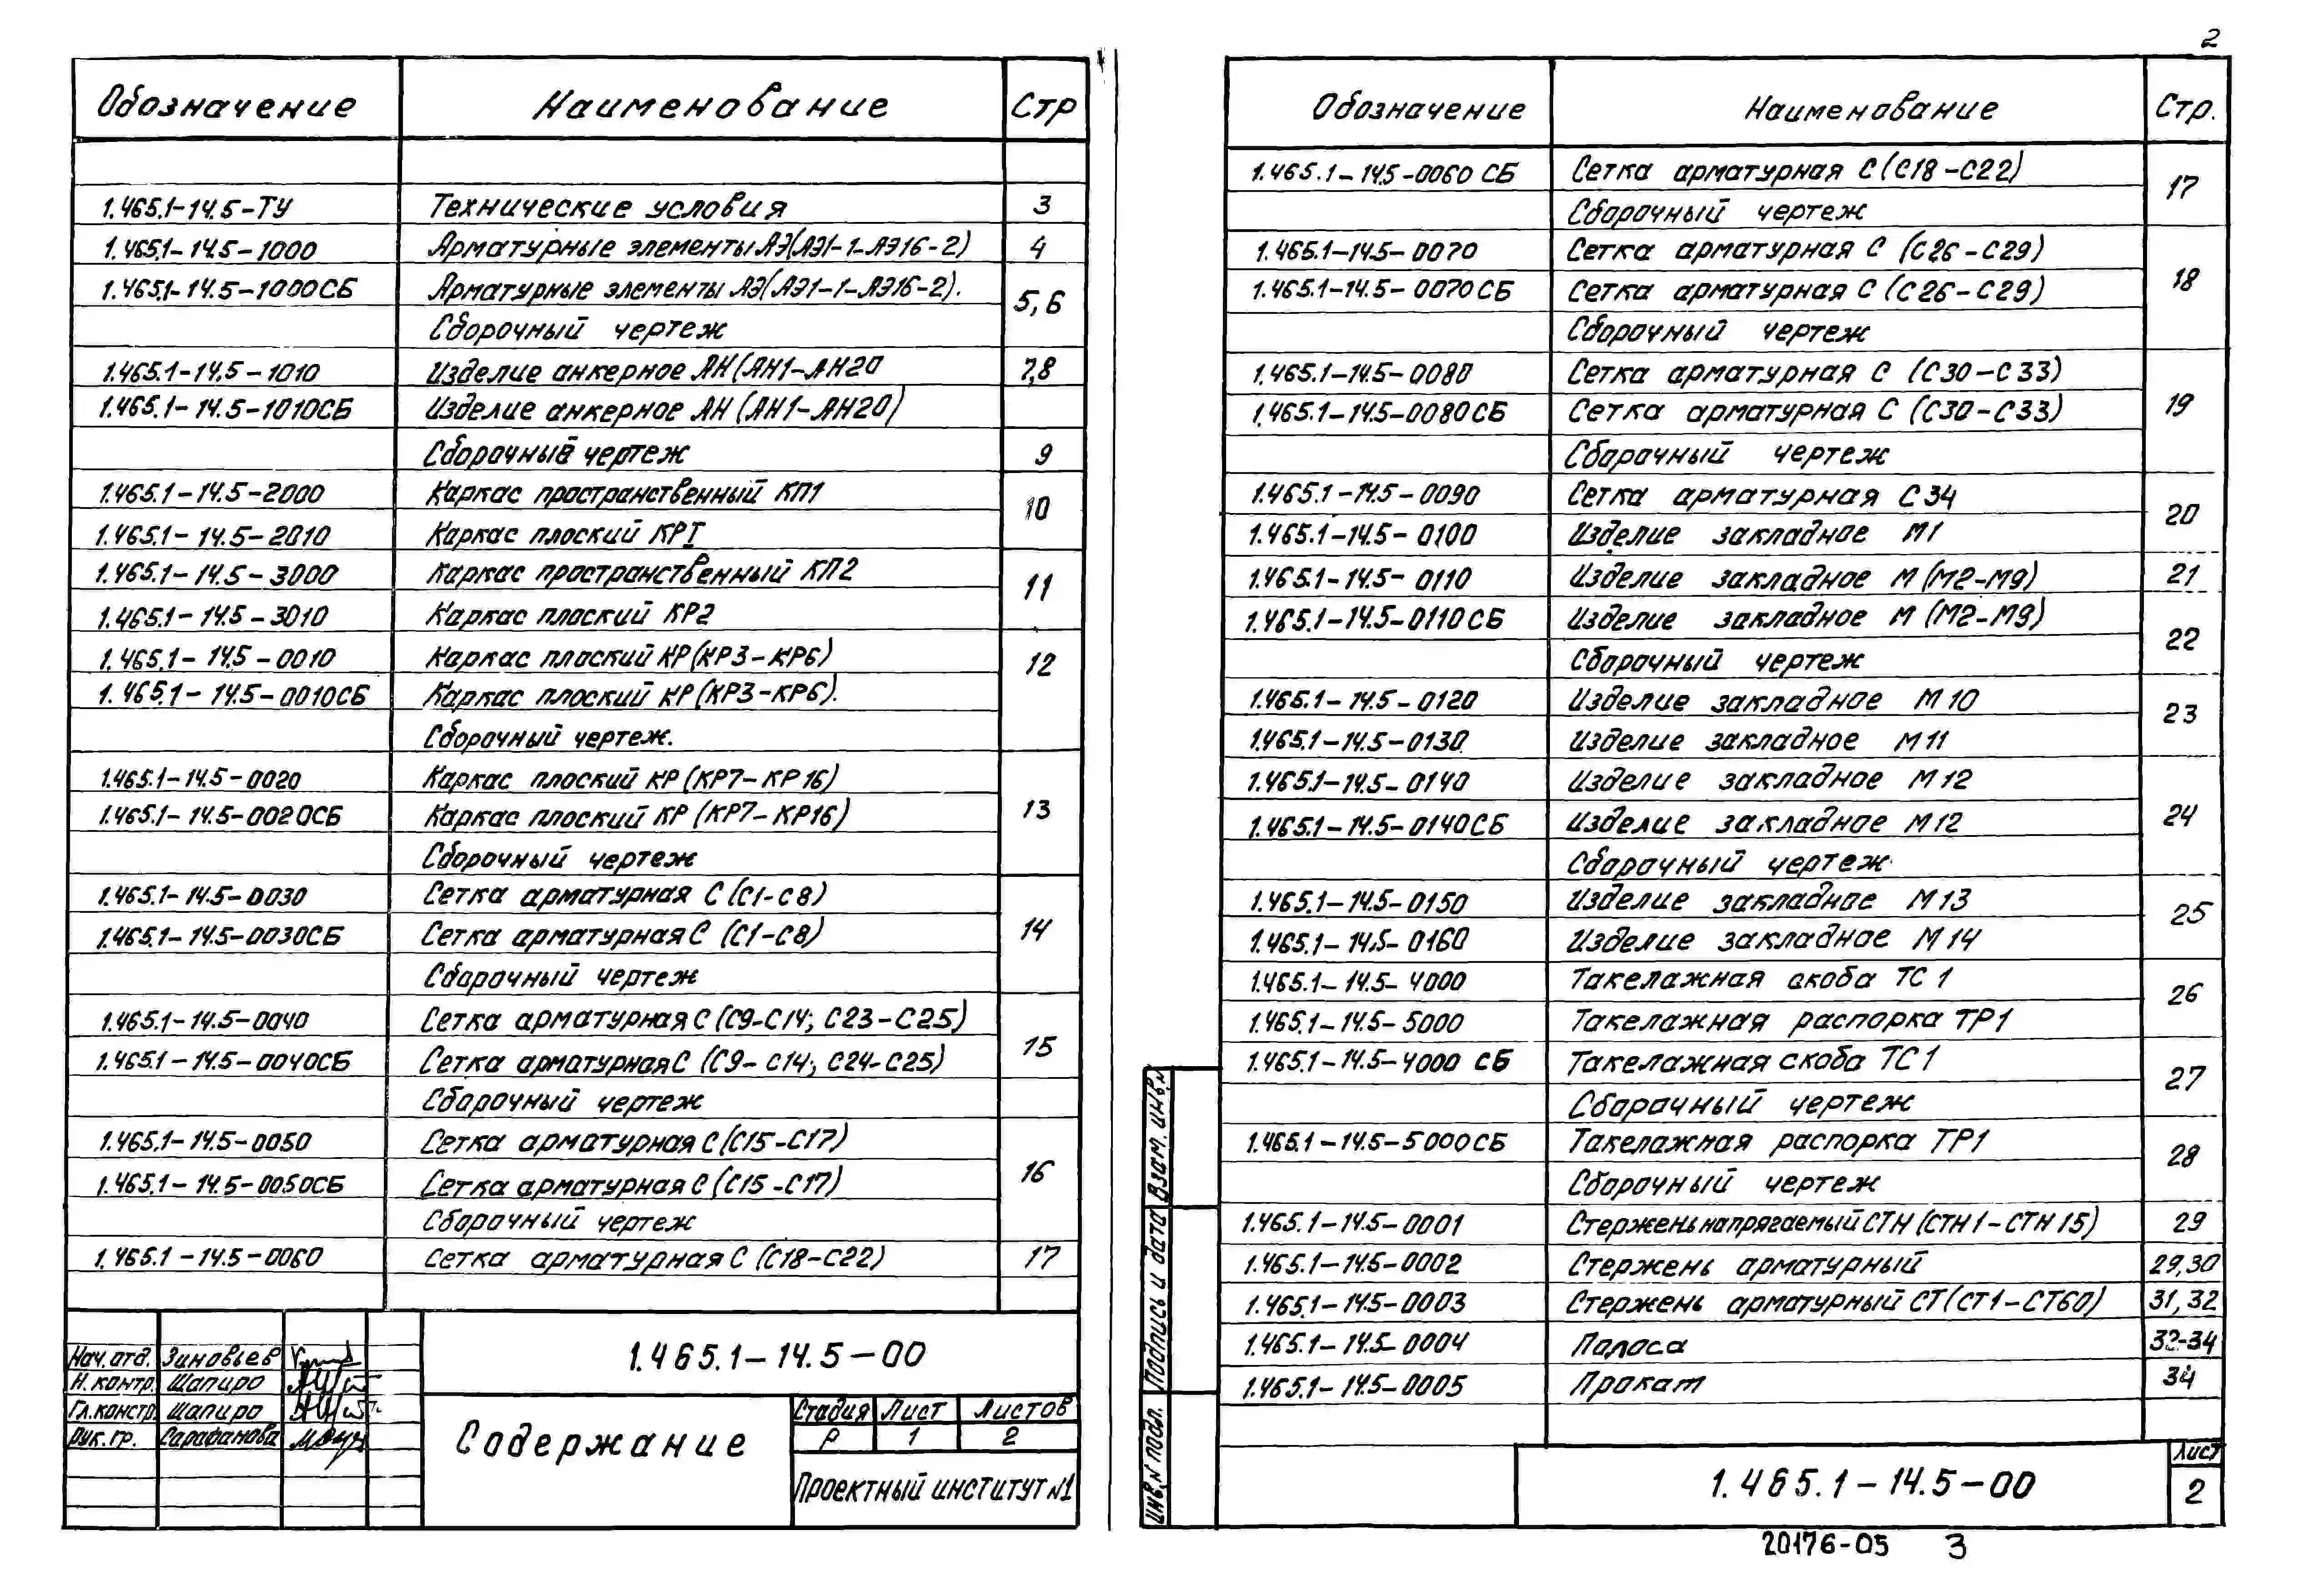 2
Обозначение Наименование Стр
1.465.1-14.5-ТУ Технические условия 3
1.465.1-14.5-1000 Арматурные элементы АЭ(АЭ1-1-АЭ16-2) 4
1.465.1-14.5-1000СБ Арматурные элементы АЭ(АЭ1-1-АЭ16-2). 5,6
Сборочный чертеж
1.465.1-14.5-1010 Изделие анкерное АН(АН1-АН20 7,8
1.465.1-14.5-1010СБ Изделие анкерное АН (АН1-АН20)
Сборочный чертеж 9
1.465.1-14.5-2000 Каркас пространственный КП1 10
1.465.1-14.5-2010 Каркас плоский КРI
1.465.1-14.5-3000 Каркас пространственный КП2 11
1.465.1-14.5-3010 Каркас плоский КР2
1.465.1-14.5-0010 Каркас плоский КР(КР3-КР6) 12
1.465.1-14.5-0010СБ Каркас плоский КР(КР3-КР6).
Сборочный чертеж.
1.465.1-14.5-0020 Каркас плоский КР(КР7-КР16) 13
1.465.1-14.5-0020СБ Каркас плоский КР (КР7-КР16)
Сборочный чертеж
1.465.1-14.5-0030 Сетка арматурная С (С1-С8) 14
1.465.1-14.5-0030СБ Сетка арматурная С (С1-С8)
Сборочный чертеж
1.465.1-14.5-0040 Сетка арматурная С (С9-С14; С23-С25) 15
1.465.1-14.5-0040СБ Сетка арматурная С (С9-С14; С24-С25)
Сборочный чертеж
1.465.1-14.5-0050 Сетка арматурная С (С15-С17) 16
1.465.1-14.5-0050СБ Сетка арматурная С (С15-С17)
Сборочный чертеж
1.465.1-14.5-0060 Сетка арматурная С (С18-С22) 17
Нач.отд. Зиновьев
Н.контр. Шапиро
Гл.констр. Шапиро
Рук.гр. Сарафанова
1.465.1-14.5-00
Содержание
Стадия Лист Листов
Р 1 2
Проектный институт №1
Обозначение Наименование Стр.
1.465.1-14.5-0060 СБ Сетка арматурная С (С18-С22) 17
Сборочный чертеж
1.465.1-14.5-0070 Сетка арматурная С (С26-С29) 18
1.465.1-14.5-0070СБ Сетка арматурная С (С26-С29)
Сборочный чертеж
1.465.1-14.5-0080 Сетка арматурная С (С30-С33) 19
1.465.1-14.5-0080СБ Сетка арматурная С (С30-С33)
Сборочный чертеж
1.465.1-14.5-0090 Сетка арматурная С34 20
1.465.1-14.5-0100 Изделие закладное М1
1.465.1-14.5-0110 Изделие закладное М (М2-М9) 21
1.465.1-14.5-0110СБ Изделие закладное М (М2-М9) 22
Сборочный чертеж
1.465.1-14.5-0120 Изделие закладное М10 23
1.465.1-14.5-0130 Изделие закладное М11
1.465.1-14.5-0140 Изделие закладное М12 24
1.465.1-14.5-0140СБ Изделие закладное М12
Сборочный чертеж
1.465.1-14.5-0150 Изделие закладное М13 25
1.465.1-14.5-0160 Изделие закладное М14
1.465.1-14.5-4000 Такелажная скоба ТС 1 26
1.465.1-14.5-5000 Такелажная распорка ТР1
1.465.1-14.5-4000 СБ Такелажная скоба ТС1 27
Сборочный чертеж
1.465.1-14.5-5000СБ Такелажная распорка ТР1 28
Сборочный чертеж
1.465.1-14.5-0001 Стержень напрягаемый СТН (СТН1-СТН15) 29
1.465.1-14.5-0002 Стержень арматурный 29,30
1.465.1-14.5-0003 Стержень арматурный СТ(СТ1-СТ60) 31,32
1.465.1-14.5-0004 Полоса 32-34
1.465.1-14.5-0005 Прокат 34
Инв.№ подл. Подпись и дата Взам. инв.№
1.465.1-14.5-00
Лист
2
20176-05 3